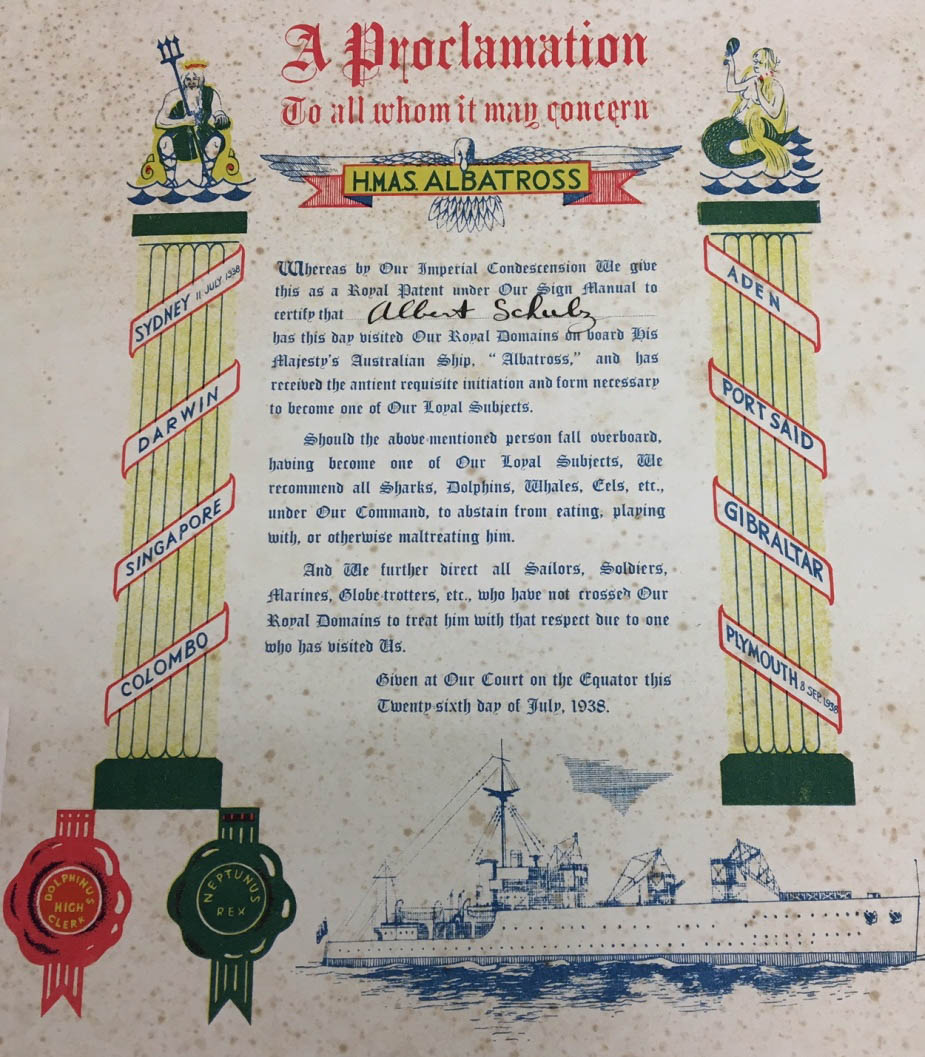 A Proclamation
To all whom it may concern
H.M.A.S. ALBATROSS
SYDNEY 11 JULY 1938
DARWIN
SINGAPORE
COLOMBO
Whereas by Our Imperial Condescension We give
this as a Royal Patent under Our Sign Manual to
certify that Albert Schulz
has this day visited Our Royal Domains on board His
Majesty's Australian Ship, "Albatross," and has
received the antient requisite initiation and form necessary
to become one of Our Loyal Subjects.
Should the above-mentioned person fall overboard,
having become one of Our Loyal Subjects, We
recommend all Sharks, Dolphins, Whales, Eels, etc.,
under Our Command, to abstain from eating, playing
with, or otherwise maltreating him.
And We further direct all Sailors, Soldiers,
Marines, Globe-trotters, etc., who have not crossed Our
Royal Domains to treat him with that respect due to one
who has visited Us.
Given at Our Court on the Equator this
Twenty-sixth day of July, 1938.
ADEN
PORT SAID
GIBRALTAR
PLYMOUTH 8 SEP. 1938
DOLPHINUS
HIGH
CLERK
NEPTUNUS
REX